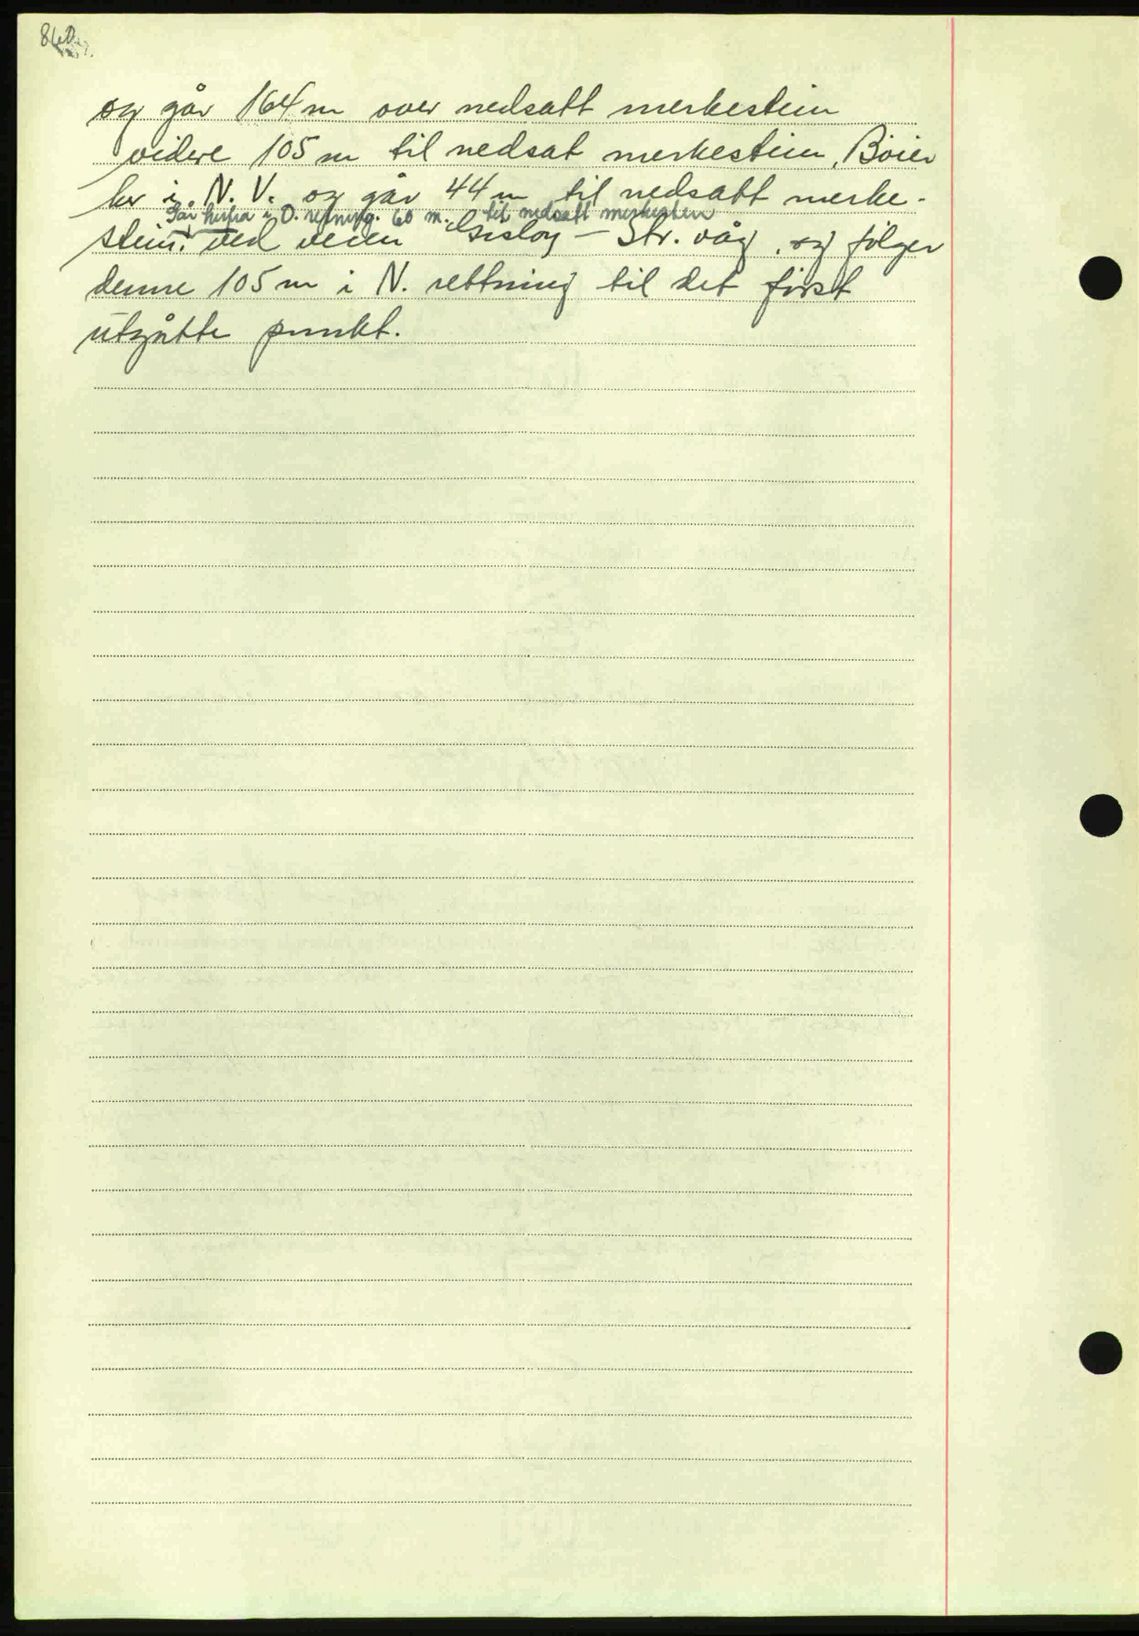 og går 164 m over nedsatt merkestein
videre 105 m til nedsat merkestein, Böier
her i N. V. og går 44 m til nedsatt merke-
Går herfra i O. retning. 60 m. til nedsatt merkesten
stein. ved veien - Str. våg, og følger
denne 105 m i N. rettning til det først
utgåtte punkt.